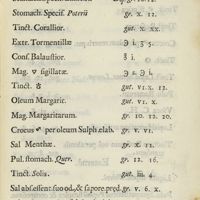 Stomach. Specif. Poterii gr. x. 12.
Tinct. Corallior. gut. x. xx.
Extr. Tormentillæ ℈ i. 5 5.
Conf. Balaustior. ℥ i.
Mag. sigillatæ. ℈ i.
Tinct. gut. vi. x. 12.
Oleum Margarit. gut. vi. x.
Mag. Margaritarum. gr. 10. 12. 20.
Crocus ♂ per oleum Sulph. elab. gr. v. vi.
Sal Menthæ. gr. x. 12.
Pul. stomach. Quer. gr. 12. 16.
Tinct. Solis. gut. iii. 4.
Sal absſent. ſuo od, & ſapore, pręd. gr. v. 6. x.